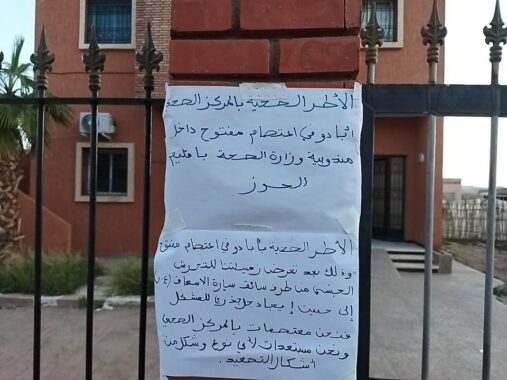 الأطر الصحية بالمركز الصحي
ابادو في اعتصام مفتوح داخل
مندوبية وزارة الصحة باقليم
الحوز
الأطر الصحية بأبادو في اعتصام مفتوح
وذلك بعد تعرض زميلتنا للتحرش
الجنسي من طرف سائق سيارة الاسعاف
إلى حين إيجاد حل جذري للمشكل
فنحن معتصمات بالمركز الصحي
ونحن مستعدات لأي نوع وشكل من
أشكال التصعيد.